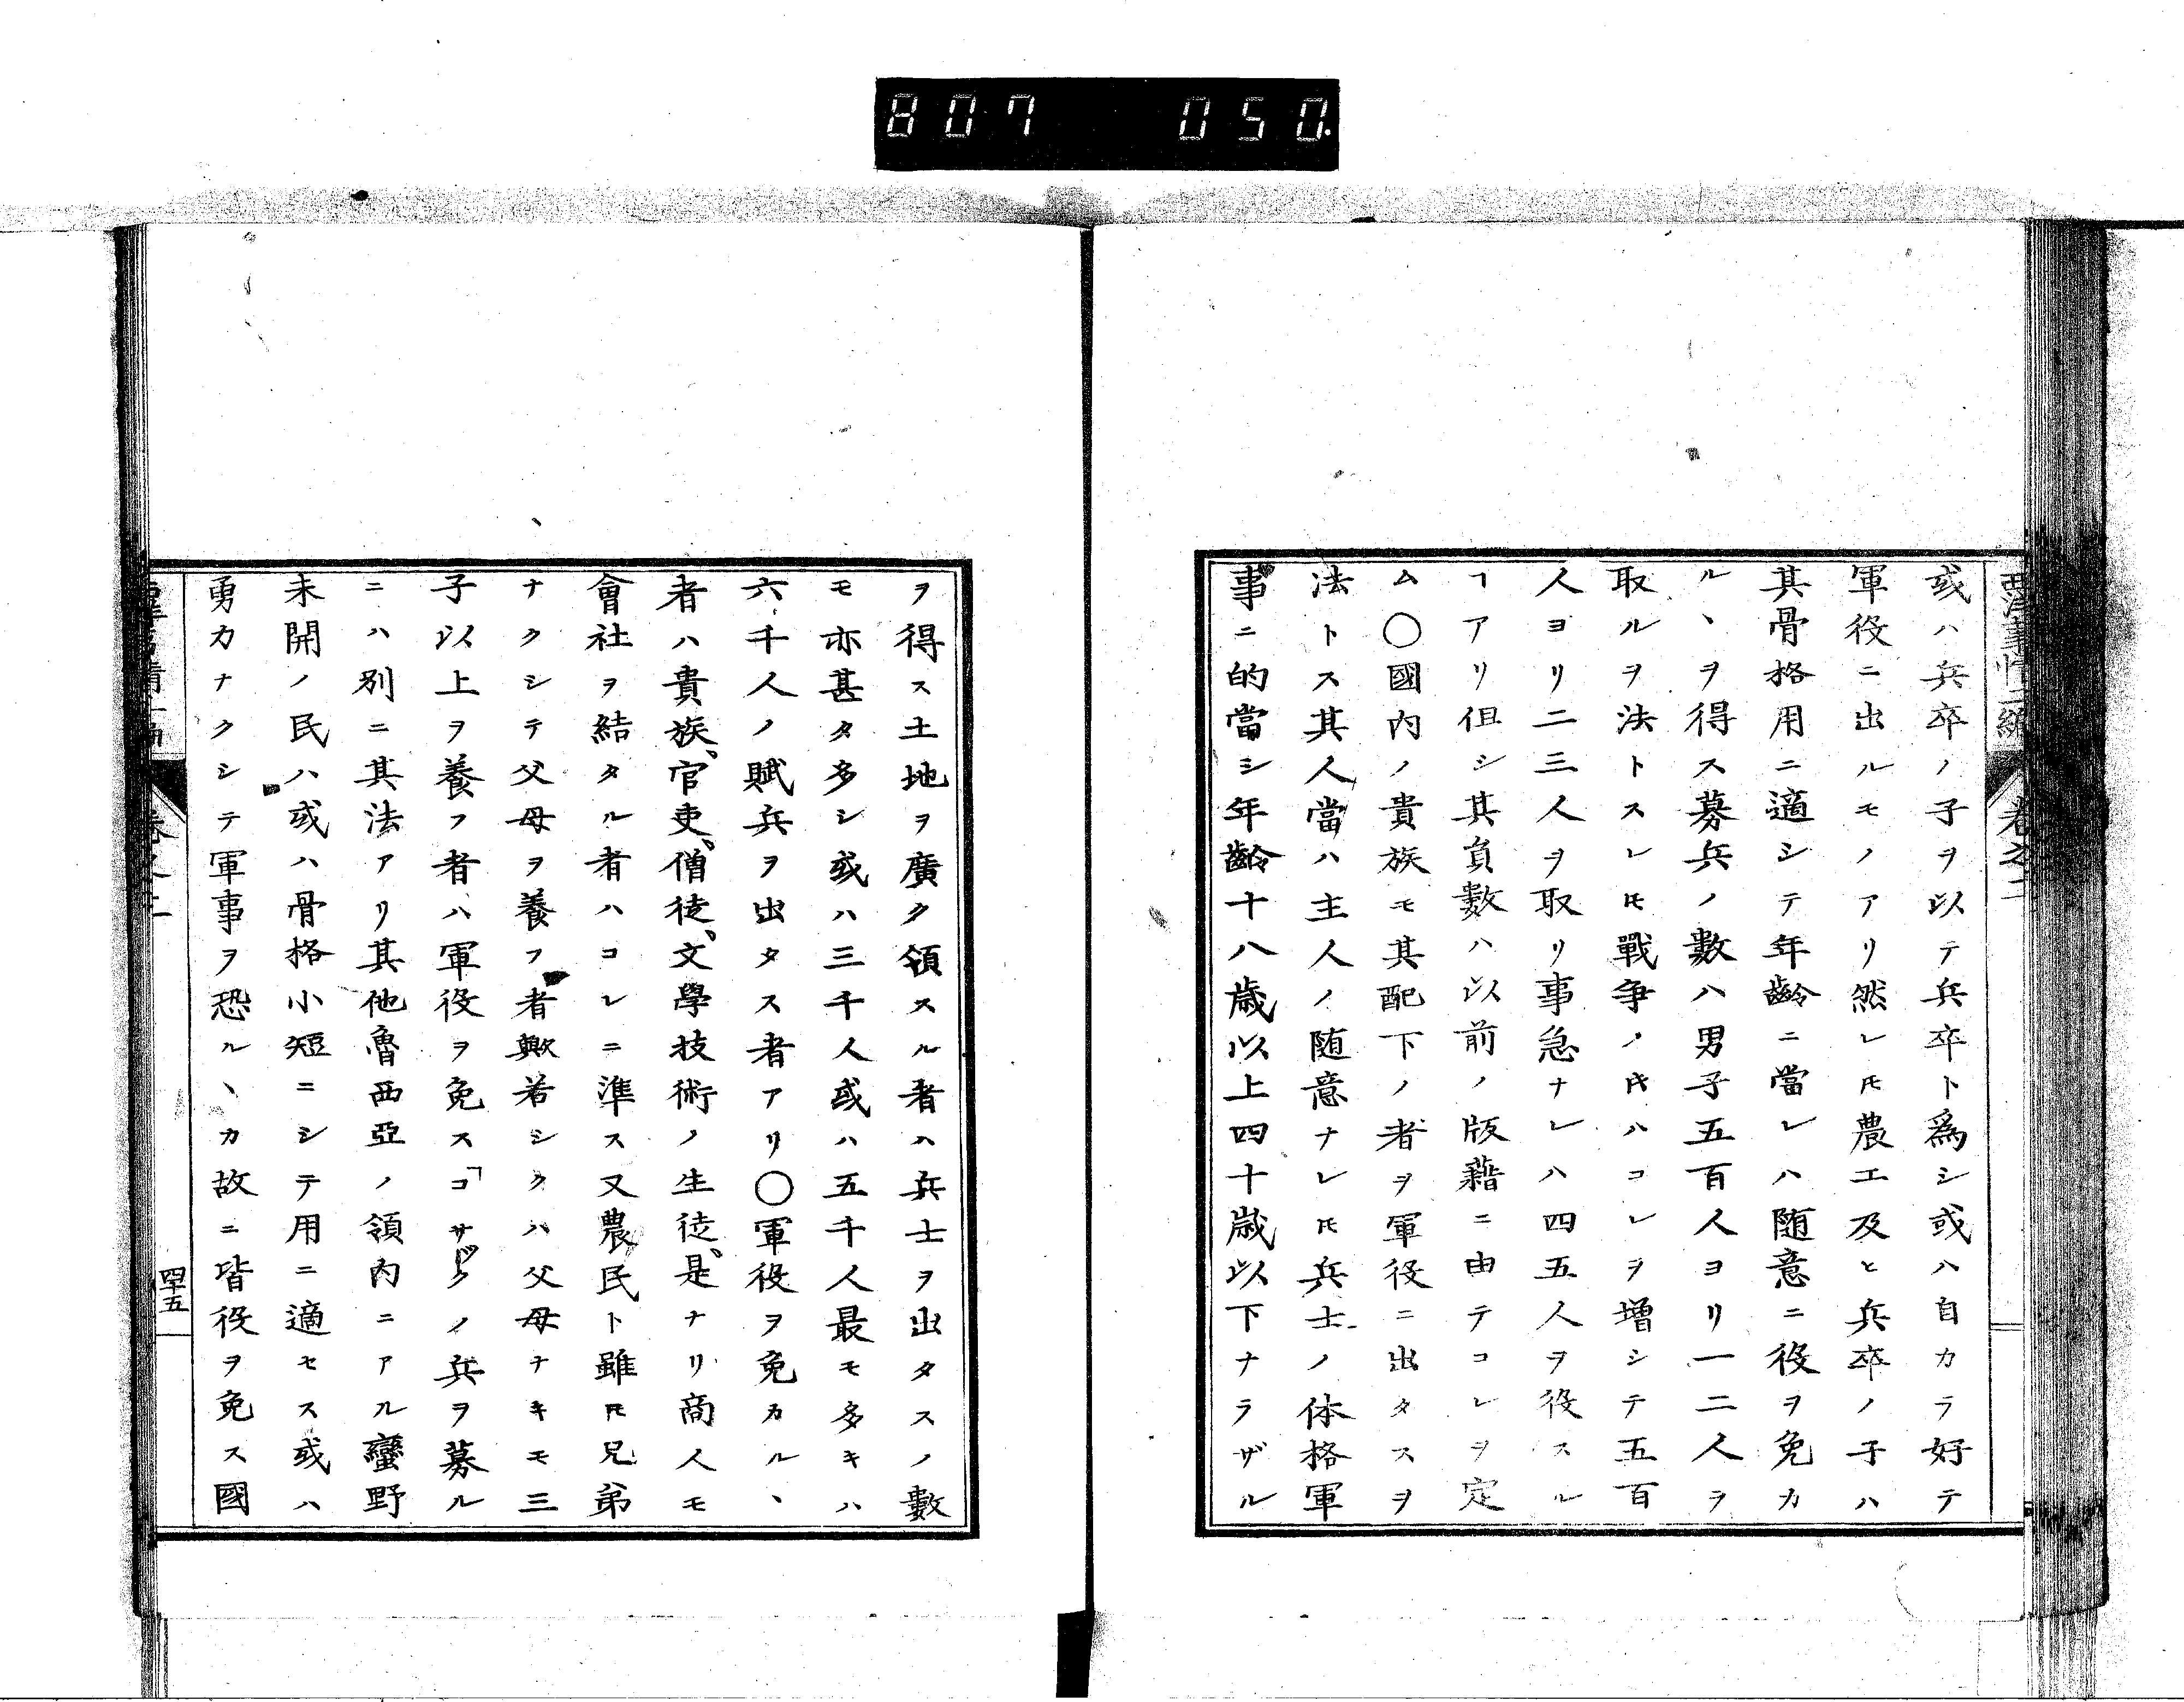 807 050.
西洋事情二編 卷之二
或ハ兵卒ノ子ヲ以テ兵卒ト爲シ或ハ自カラ好テ
軍役ニ出ルモノアリ然レ𪜈農工及ヒ兵卒ノ子ハ
其骨格用ニ適シテ年齡ニ當レハ随意ニ役ヲ免カ
ルヽヲ得ス募兵ノ數ハ男子五百人ヨリ一二人ヲ
取ルヲ法トスレ𪜈戰爭ノ𪜈ハコレヲ増シテ五百
人ヨリ二三人ヲ取リ事急ナレハ四五人ヲ役スル
ヿアリ但シ其員數ハ以前ノ版藉ニ由テコレヲ定
ム〇國内ノ貴族モ其配下ノ者ヲ軍役ニ出タスヲ
法トス其人當ハ主人ノ随意ナレ𪜈兵士ノ体格軍
事ニ的當シ年齡十八歳以上四十歳以下ナラザル
ヲ得ス土地ヲ廣ク領スル者ハ兵士ヲ出タスノ數
モ亦甚タ多シ或ハ三千人或ハ五千人最モ多キハ
六千人ノ賦兵ヲ出タス者アリ〇軍役ヲ免カルヽ
者ハ貴族、官吏、僧徒、文學技術ノ生徒、是ナリ商人モ
會社ヲ結タル者ハコレニ準ス又農民ト雖𪜈兄弟
ナクシテ父母ヲ養フ者歟若シクハ父母ナキモ三
子以上ヲ養フ者ハ軍役ヲ免ス「コサック」ノ兵ヲ募ル
ニハ別ニ其法アリ其他魯西亞ノ領内ニアル蠻野
未開ノ民ハ或ハ骨格小短ニシテ用ニ適セス或ハ
勇力ナクシテ軍事ヲ恐ルヽカ故ニ皆役ヲ免ス國
西洋事情二編 卷之二 四十五